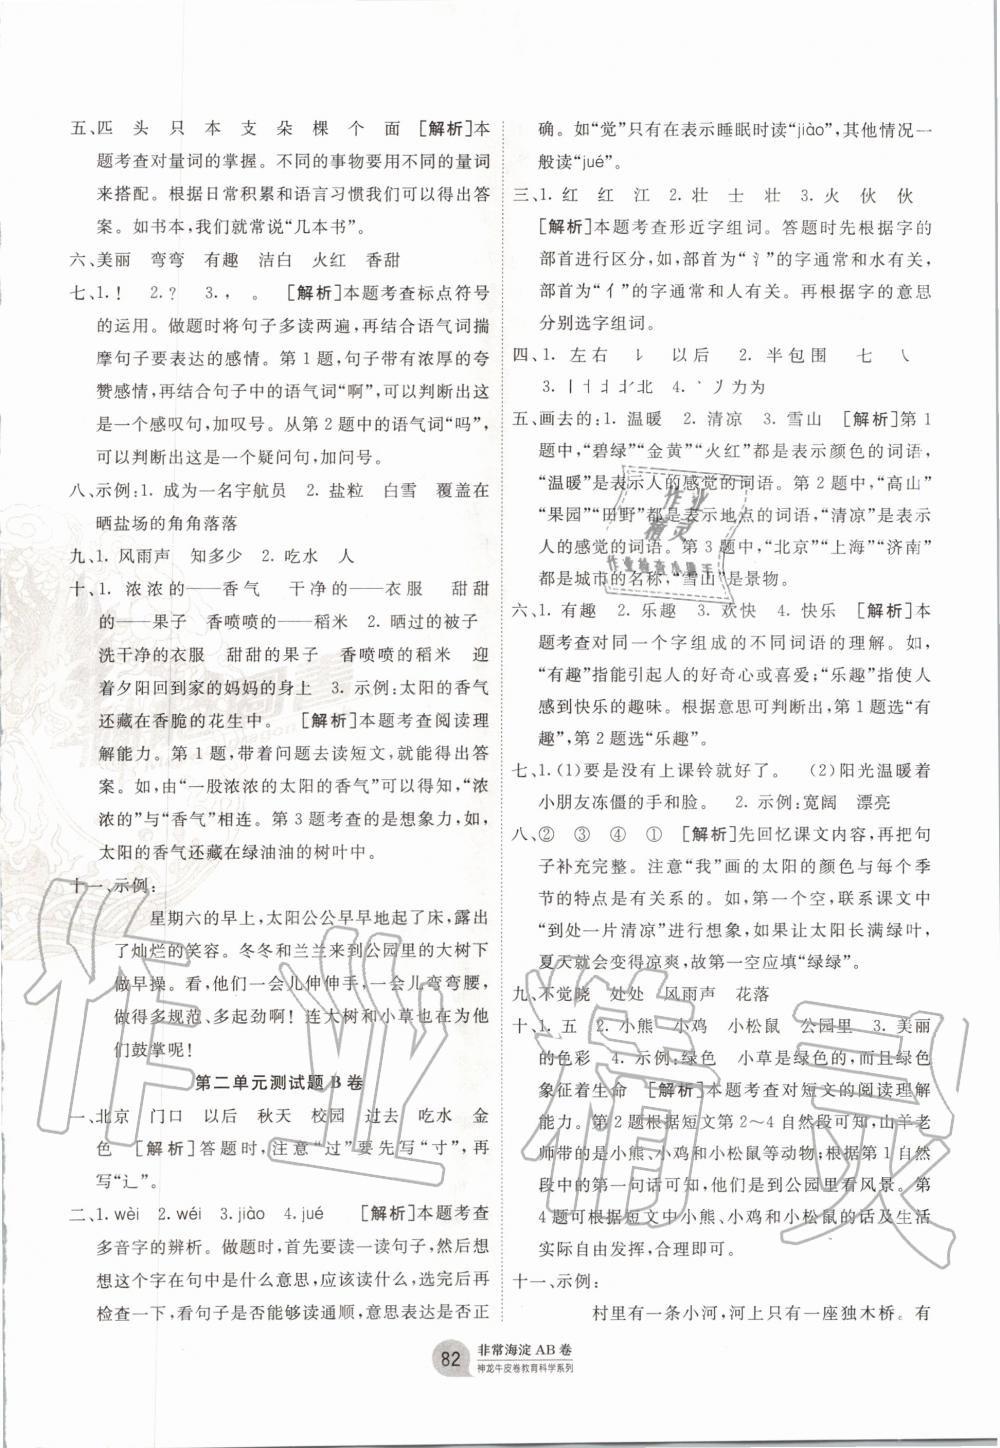 五、匹 头 只 本 支 朵 棵 个 面 [解析]本
题考查对量词的掌握。不同的事物要用不同的量词
来搭配。根据日常积累和语言习惯我们可以得出答
案。如书本,我们就常说“几本书”。
六、美丽 弯弯 有趣 洁白 火红 香甜
七、1.！ 2.？ 3.， 。 [解析]本题考查标点符号
的运用。做题时将句子多读两遍,再结合语气词揣
摩句子要表达的感情。第1题,句子带有浓厚的夸
赞感情,再结合句子中的语气词“啊”,可以判断出这
是一个感叹句,加叹号。从第2题中的语气词“吗”,
可以判断出这是一个疑问句,加问号。
八、示例:1. 成为一名宇航员 2. 盐粒 白雪 覆盖在
晒盐场的角角落落
九、1. 风雨声 知多少 2. 吃水 人
十、1. 浓浓的——香气 干净的——衣服 甜甜
的——果子 香喷喷的——稻米 2. 晒过的被子
洗干净的衣服 甜甜的果子 香喷喷的稻米 迎
着夕阳回到家的妈妈的身上 3. 示例:太阳的香气
还藏在香脆的花生中。 [解析]本题考查阅读理
解能力。第1题,带着问题去读短文,就能得出答
案。如,由“一股浓浓的太阳的香气”可知,“浓
浓的”与“香气”相连。第3题考查的是想象力,如,
太阳的香气还藏在绿油油的树叶中。
十一、示例:
星期六的早上,太阳公公早早地起了床,露出
了灿烂的笑容。冬冬和兰兰来到公园里的大树下
做早操。看,他们一会儿伸伸手,一会儿弯弯腰,
做得多规范、多起劲啊！连大树和小草也在为他
们鼓掌呢！
第二单元测试题 B 卷
一、北京 门口 以后 秋天 校园 过去 吃水 金
色 [解析]答题时,注意“过”要先写“寸”,再
写“辶”。
二、1. wèi 2. wéi 3. jiào 4. jué [解析]本题考查
多音字的辨析。做题时,首先要读一读句子,然后想
想这个字在句中是什么意思,应该读什么,选完后再
检查一下,看句子是否能够读通顺,意思表达是否正
确。如“觉”只有在表示睡眠时读“jiào”,其他情况一
般读“jué”。
三、1. 红 红 江 2. 壮 士 壮 3. 火 伙 伙
[解析]本题考查形近字组词。答题时先根据字的
部首进行区分,如,部首为“氵”的字通常和水有关,
部首为“亻”的字通常和人有关。再根据字的意思
分别选字组词。
四、1. 左右 ㇊ 以后 2. 半包围 七 ㇏
3. 丨 北 4. 丶 丿 为 为
五、画去的:1. 温暖 2. 清凉 3. 雪山 [解析]第1
题中,“碧绿”“金黄”“火红”都是表示颜色的词语,
“温暖”是表示人的感觉的词语。第2题中,“高山”
“果园”“田野”都是表示地点的词语,“清凉”是表示
人的感觉的词语。第3题中,“北京”“上海”“济南”
都是城市的名称,“雪山”是景物。
六、1. 有趣 2. 乐趣 3. 欢快 4. 快乐 [解析]本
题考查对同一个字组成的不同词语的理解。如,
“有趣”指能引起人的好奇心或喜爱;“乐趣”指使人
感到快乐的趣味。根据意思可判断出,第1题选“有
趣”,第2题选“乐趣”。
七、1.(1)要是没有上课铃就好了。 (2)阳光温暖着
小朋友冻僵的手和脸。 2. 示例:宽阔 漂亮
八、② ③ ④ ① [解析]先回忆课文内容,再把句
子补充完整。注意“我”画的太阳的颜色与每个季
节的特点是有关系的。第一空,联系课文中
“到处一片清凉”进行想象,如果让太阳长满绿叶,
夏天就会变得凉爽,故第一空应填“绿绿”。
九、不觉晓 处处 风雨声 花落
十、1. 五 2. 小熊 小鸡 小松鼠 公园里 3. 美丽
的色彩 4. 示例:绿色 小草是绿色的,而且绿色
象征着生命 [解析]本题考查对短文的阅读理解
能力。第2题根据短文第2～4自然段可知,山羊老
师带的是小熊、小鸡和小松鼠等动物;根据第1自然
段中的第一句话可知,他们是到公园里看风景。第
4题可根据短文中小熊、小鸡和小松鼠的话及生活
实际自由发挥,合理即可。
十一、示例:
村里有一条小河,河上只有一座独木桥。有
82
非常海淀 AB 卷
神龙牛皮卷教育科学系列
作业精灵
作业
精灵
作业检查小助手